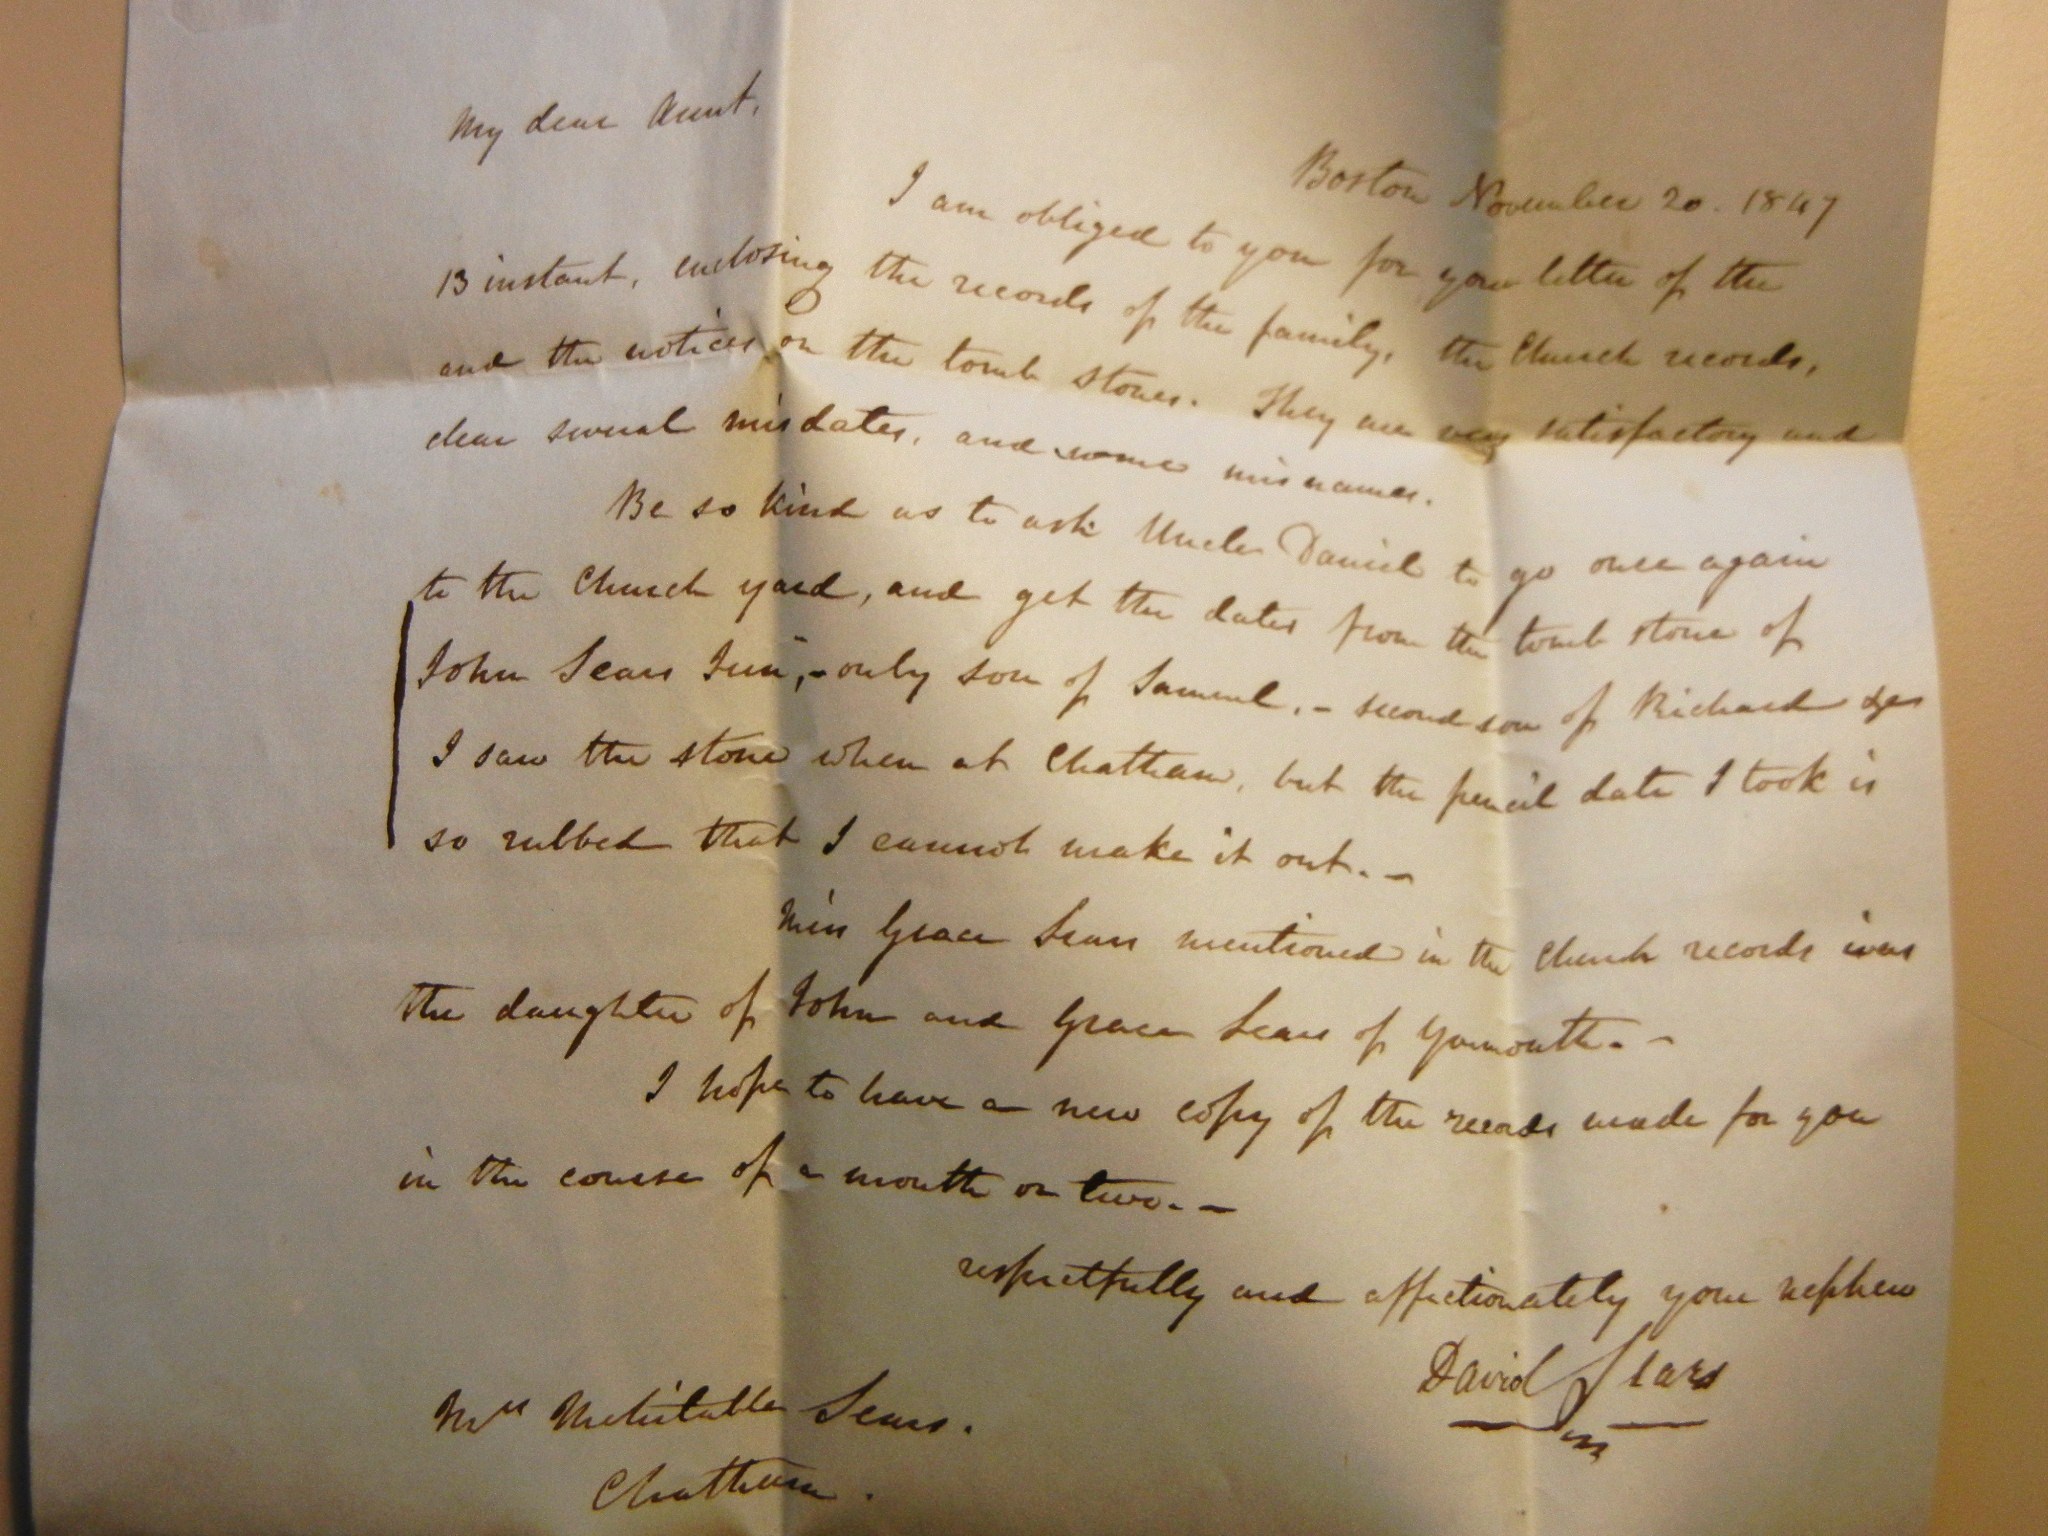 My dear Aunt,
Boston November 20. 1847
I am obliged to you for your letter of the
13 instant, enclosing the records of the family, the Church records,
and the notices on the tomb stones. They are very satisfactory and
clear several misdates, and some misnames.
Be so kind as to ask Uncle Daniel to go once again
to the Church yard, and get the dates from the tomb stone of
John Sears Jun, - only son of Samuel, - second son of Richard
I saw the stone when at Chatham, but the pencil date I took is
so rubbed that I cannot make it out. -
Miss Grace Sears mentioned in the Church records was
the daughter of John and Grace Sears of Yarmouth. -
I hope to have a new copy of the records made for you
in the course of a month or two. -
respectfully and affectionately your nephew
David Sears
Mrs Mehitable Sears.
Chatham.